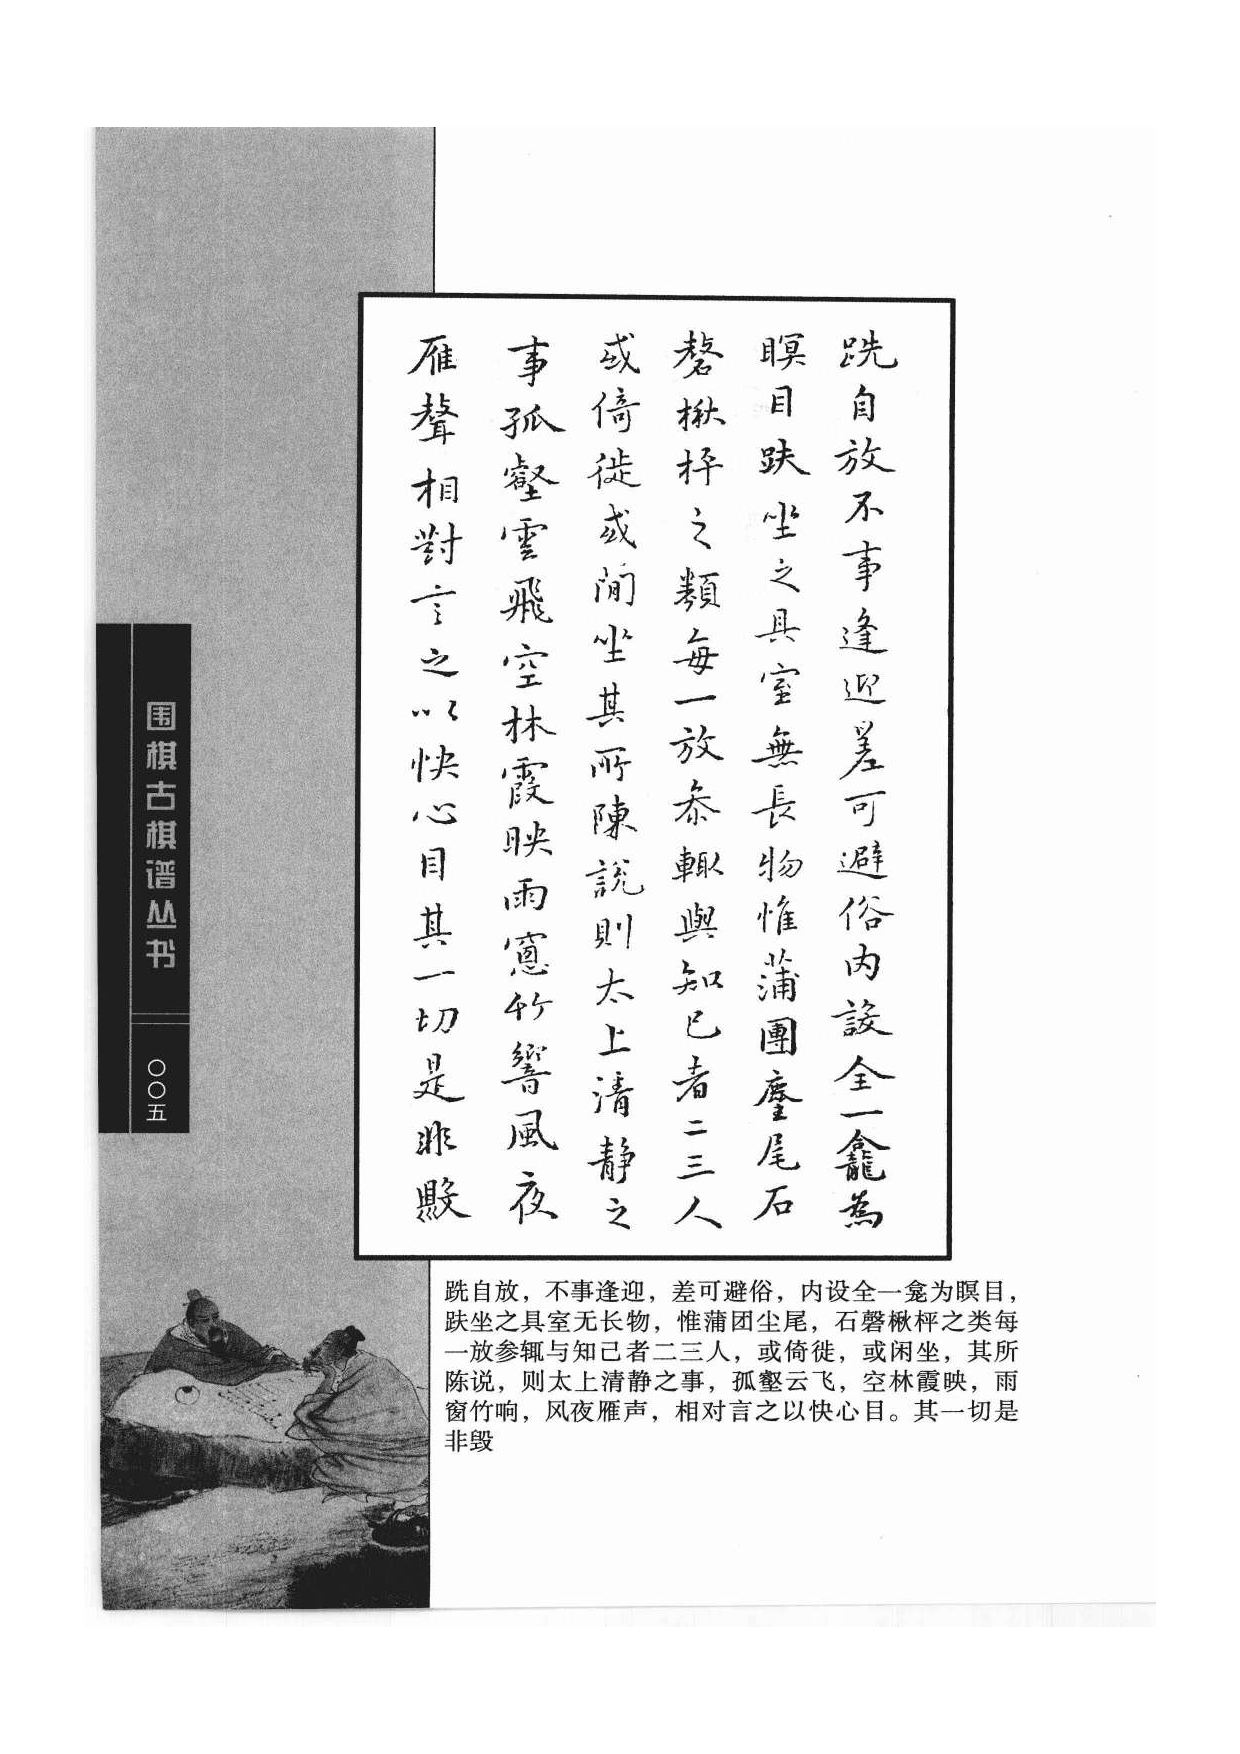 跣自放不事逢迎差可避俗内設全一龕為
瞑目趺坐之具室無長物惟蒲團麈尾石
磬楸枰之類每一放叅輒與知己者二三人
或倚徙或閒坐其所陳說則太上清静之
事孤壑雲飛空林霞映雨窻竹響風夜
雁聲相對言之以快心目其一切是非毁
围棋古棋谱丛书
〇〇五
跣自放，不事逢迎，差可避俗，内设全一龛为瞑目，
趺坐之具室无长物，惟蒲团尘尾，石磬楸枰之类每
一放参辄与知己者二三人，或倚徙，或闲坐，其所
陈说，则太上清静之事，孤壑云飞，空林霞映，雨
窗竹响，风夜雁声，相对言之以快心目。其一切是
非毁